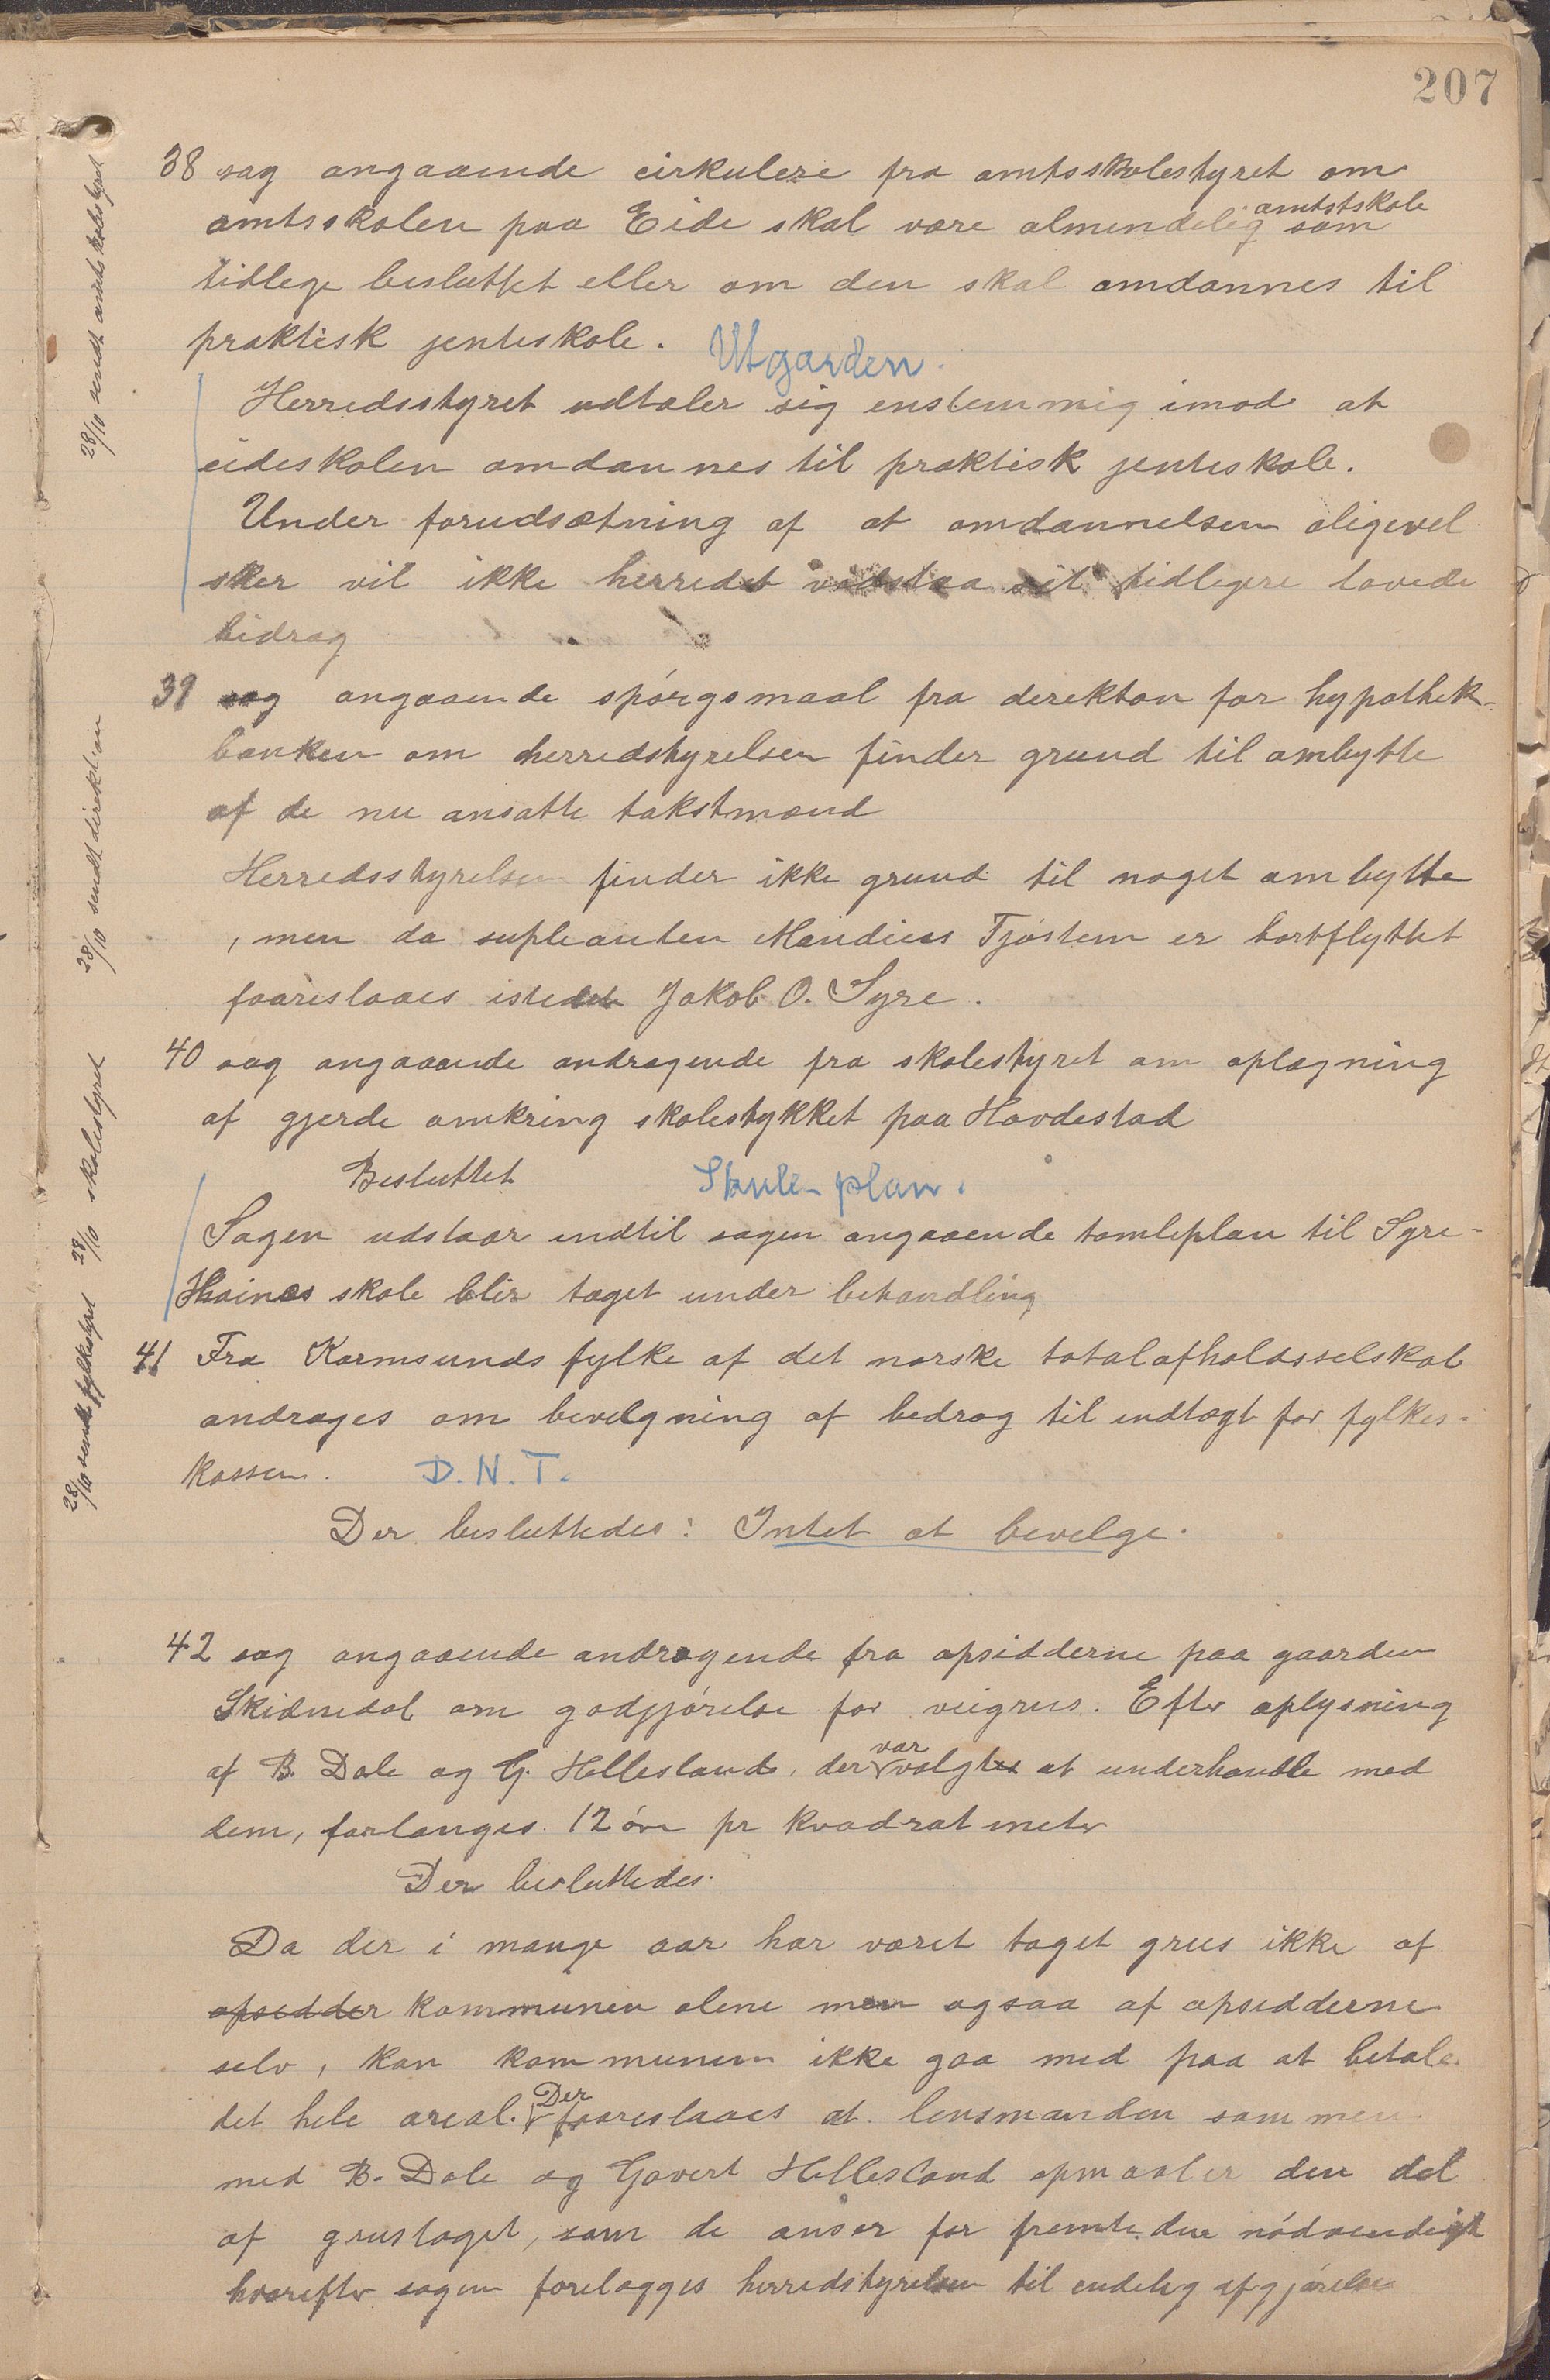 207
38 sag angaaende cirkulere fra amtsskolestyret om
amtsskolen paa Eide skal være almindelig amtstskole som
tidlege besluttet eller om den skal omdannes til
praktisk jenteskole. Utgarden.
Herredsstyret udtaler sig enstemmig imod at
eideskolen omdannes til praktisk jenteskole.
Under forudsætning af at omdannelsen aligevel
sker vil ikke herredet vedstaa sit tidligere lovede
bidrag
28/10 sendt amtsskolestyret
39 sag angaaende spörgsmaal fra derektøn for hypothek-
banken om herredstyrelsen finder grund til ombytte
af de nu ansatte takstmænd
Herredsstyrelsen finder ikke grund til noget ombytte
, men da supleanten Mandius Tjöstem er bortflyttet
faareslaaes istedet Jakob O. Syre.
28/10 sendt direktion
40 sag angaaende andragende fra skolestyret om oplægning
af gjerde omkring skolestykket paa Hovdestad
Besluttet Skule-plan.
Sagen udstaar indtil sagen angaaende tomleplan til Syre-
Hoines skole blir taget under behandling
28/10 skolestyret
41 Fra Karmsunds fylke af det norske totalafholdsselskab
andrages om bevilgning af bedrag til indtægt for fylkes-
kassen. D.N.T.
Der besluttedes: Intet at bevilge.
28/10 sendt fylkestyret
42 sag angaaende andragende fra opsidderne paa gaarden
Skidnedal om godgjörelse for veigrus. Efter oplysning
af B. Dale og G. Hellesland, der var valgtes at underhandle med
dem, forlanges 12 öre pr kvadratmeter
Der besluttedes.
Da der i mange aar har været taget grus ikke af
opsedder kommunen alene men ogsaa af opsedderne
selv, kan kommunen ikke gaa med paa at betale
det hele areal. Der faareslaaes at lensmanden sammen
med B. Dale og Govert Hellesland opmaaler den del
af grustaget, som de anser for fremtiden nödvendigt
hvorefter sagen forelægges herredstyrelsen til endelig afgjörelse